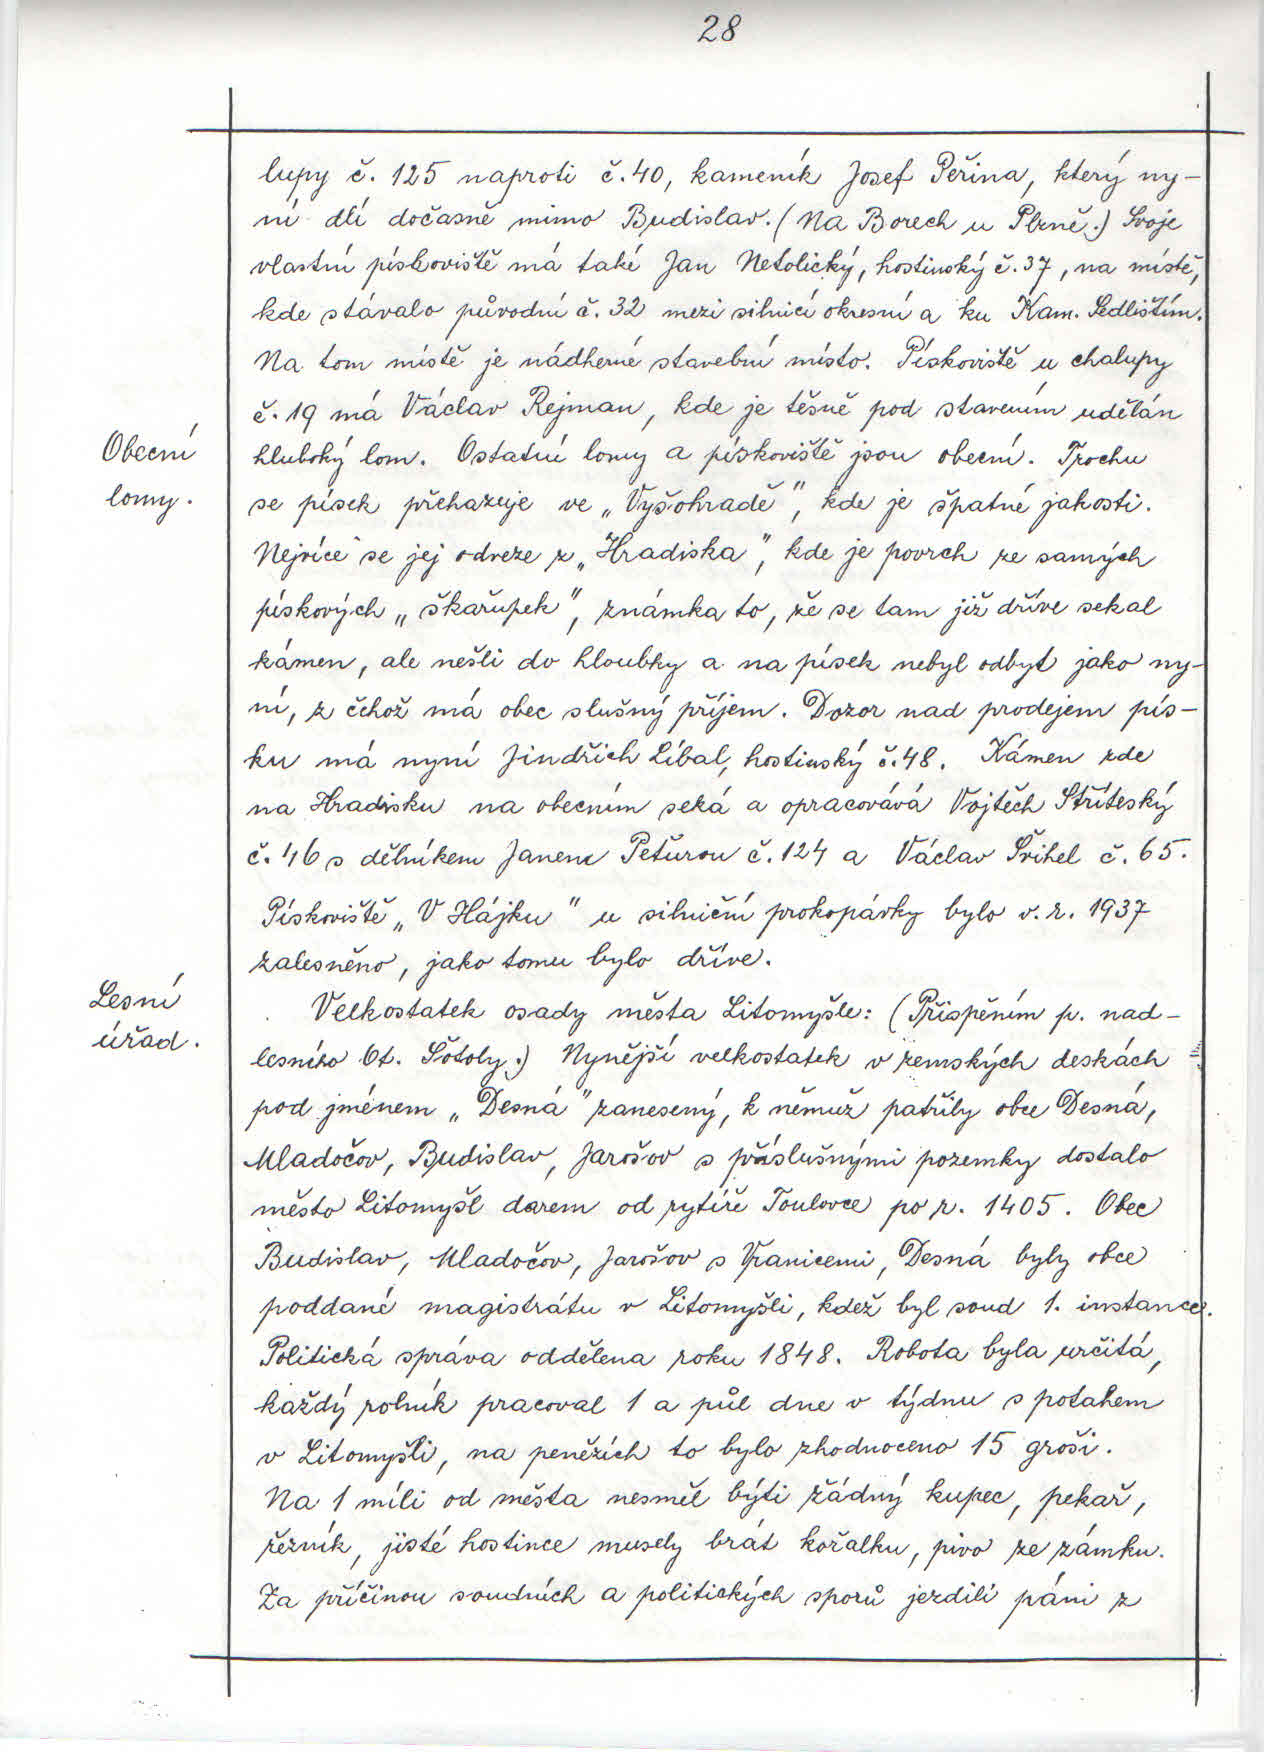 28
lupy č. 125 naproti č. 40, kameník Josef Peřina, který ny-
ní dlí dočasně mimo Budislav. (Na Borech u Plzně.) Svoje
vlastní pískoviště má také Jan Netolický, hostinský č. 37, na místě,
kde stávalo původní č. 32 mezi silnicí okresní a ku Kam. Sedlištím.
Na tom místě je nádherné stavební místo. Pískoviště u chalupy
č. 19 má Václav Rejman, kde je těsně pod stavením udělán
Obecní
lomy.
hluboký lom. Ostatní lomy a pískoviště jsou obecní. Trochu
se písek přehazuje ve „Vyšohradě", kde je špatné jakosti.
Nejvíce se jej odveze z „Hradiska", kde je povrch ze samých
pískových „škařupek", známka to, že se tam již dříve sekal
kámen, ale nešli do hloubky a na písek nebyl odbyt jako ny-
ní, z čehož má obec slušný příjem. Dozor nad prodejem pís-
ku má nyní Jindřich Líbal, hostinský č. 48. Kámen zde
na Hradisku na obecním seká a opracovává Vojtěch Stříteský
č. 46 s dělníkem Janem Peturou č. 124 a Václav Švihel č. 65.
Pískoviště „V Hájku" u silniční prokopávky bylo v. r. 1937
zalesněno, jako tomu bylo dříve.
Lesní
úřad.
Velkostatek osady města Litomyšle: (Přispěním p. nad-
lesního Ot. Šotoly.) Nynější velkostatek v zemských deskách
pod jménem „Desná" zanesený, k němuž patřily obce Desná,
Mladočov, Budislav, Jarošov s příslušnými pozemky dostalo
město Litomyšl darem od rytíře Toulovce po r. 1405. Obec
Budislav, Mladočov, Jarošov s Vranicemi, Desná byly obce
poddané magistrátu v Litomyšli, kdež byl soud 1. instance.
Politická správa oddělena roku 1848. Robota byla určitá,
každý rolník pracoval 1 a půl dne v týdnu s potahem
v Litomyšli, na penězích to bylo zhodnoceno 15 groši.
Na 1 míli od města nesměl býti žádný kupec, pekař,
řezník, jisté hostince musely brát kořalku, pivo ze zámku.
Za příčinou soudních a politických sporů jezdili páni z